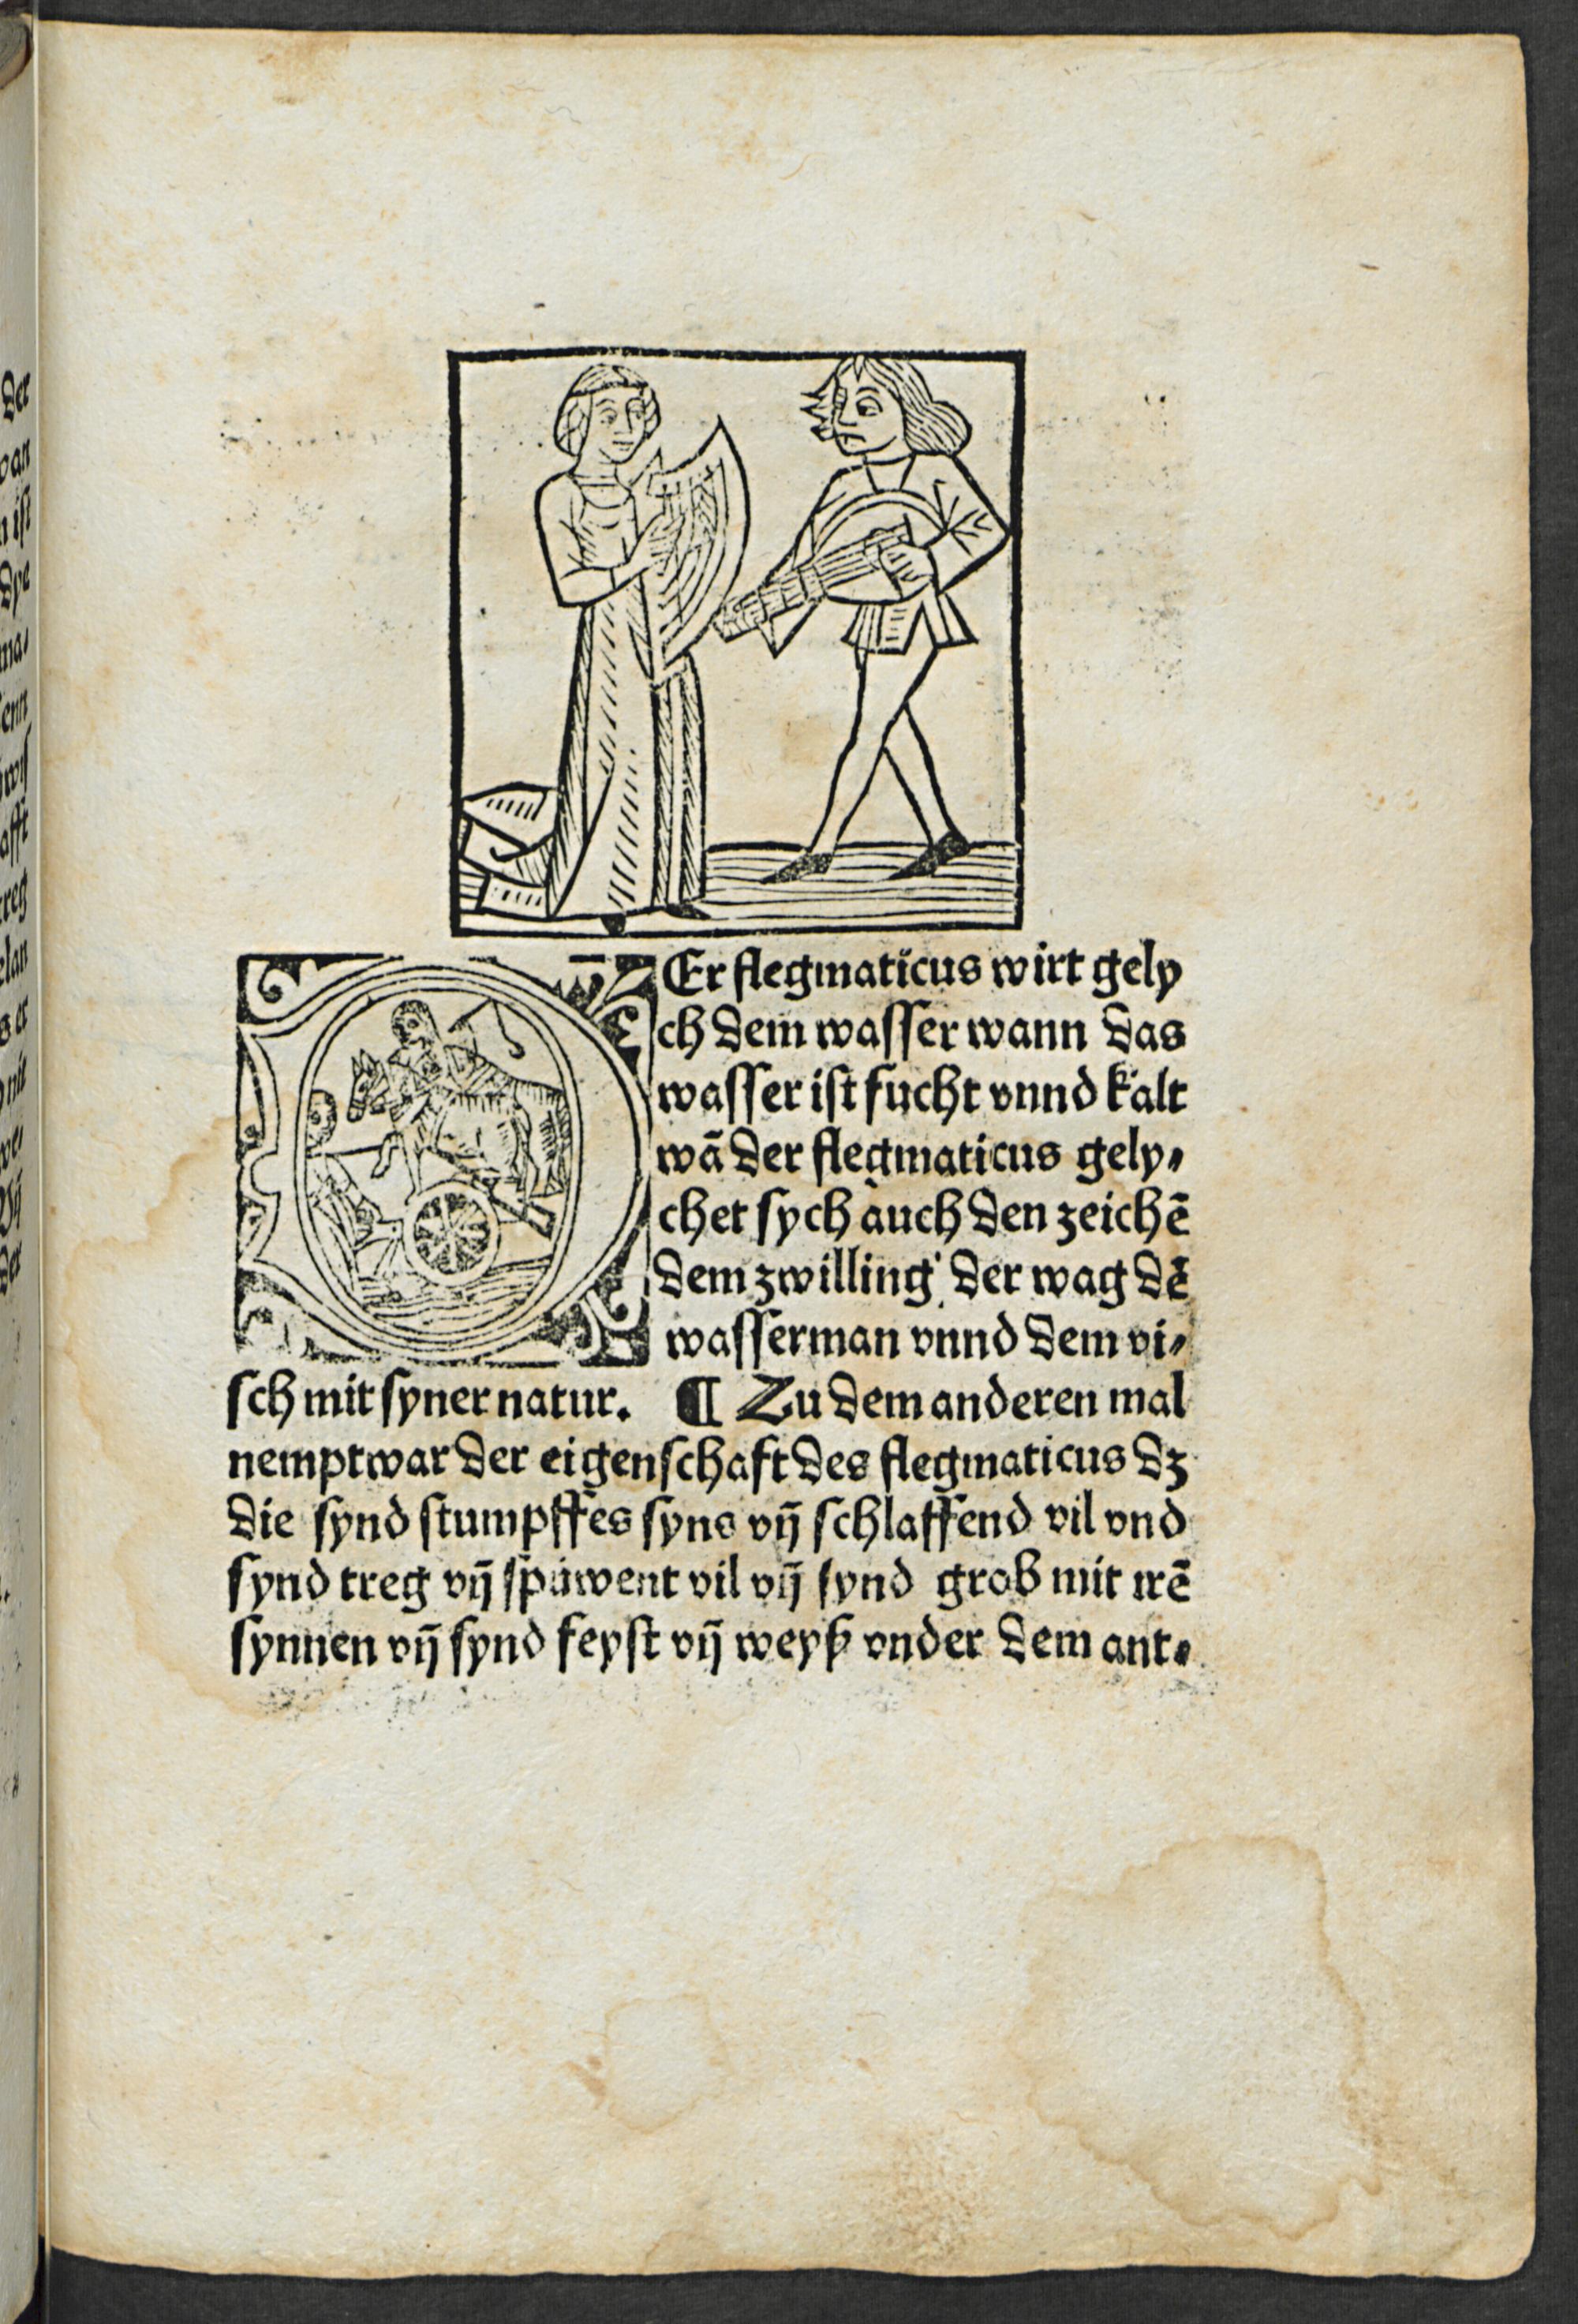 DEr flegmaticus wirt gely
ch dem wasser wann das
wasser ist fucht vnnd kalt
wā der flegmaticus gely⸗
chet sych auch den zeichē
dem zwilling der wag dē
wasserman vnnd dem vi⸗
sch mit syner natur. ¶ Zu dem anderen mal
nempt war der eigenschaft des flegmaticus dz
die synd stumpffes syns vn̄ schlaffend vil vnd
synd treg vn̄ spüwent vil vn̄ synd grob mit irē
synnen vn̄ synd feyst vn̄ weyß vnder dem ant⸗